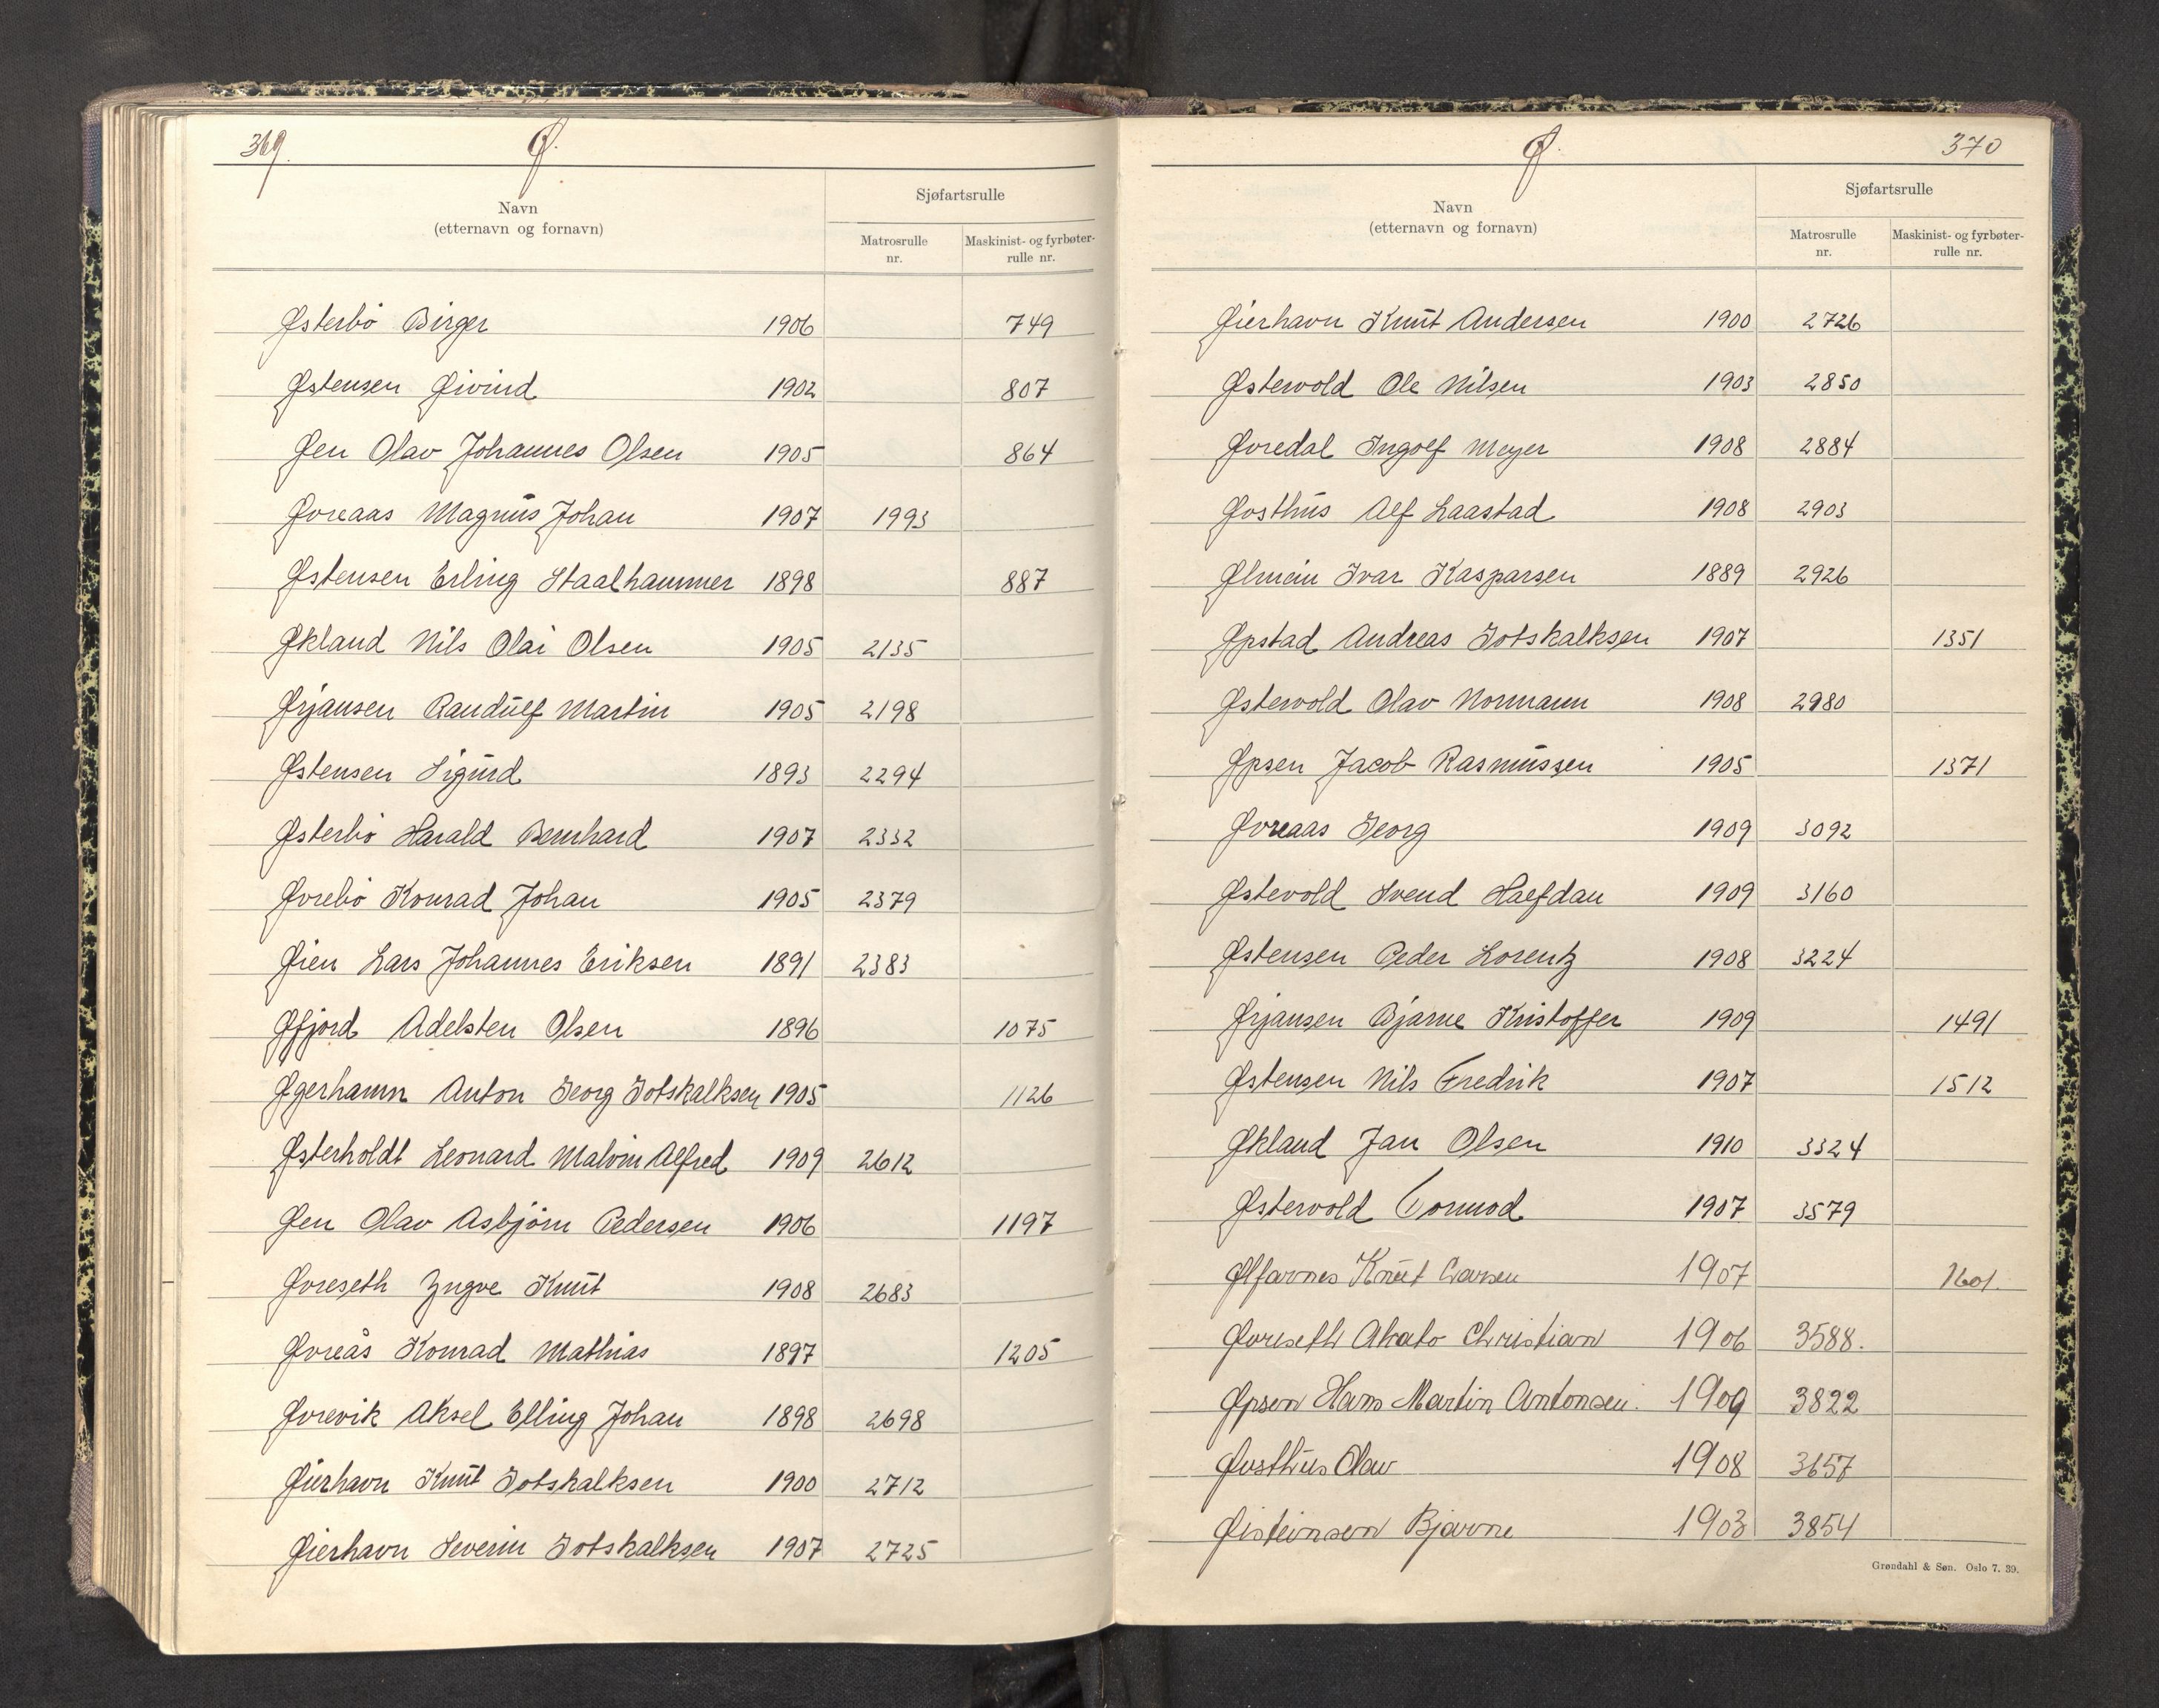 369.
Ø.
Navn
(etternavn og fornavn)
Sjøfartsrulle
Matrosrulle nr.
Maskinist- og fyrbøter-rulle nr.
Østerbö Birger 1906 749
Østensen Øivind 1902 807
Øen Olav Johannes Olsen 1905 864
Øvreaas Magnus Johan 1907 1993
Østensen Erling Staalhammer 1898 887
Økland Nils Olai Olsen 1905 2135
Ørjansen Randulf Martin 1905 2198
Østensen Sigurd 1893 2294
Østerbö Harald Bernhard 1907 2332
Øvrebö Konrad Johan 1905 2379
Øien Lars Johannes Eriksen 1891 2383
Øfjord Adelsten Olsen 1896 1075
Øgerhamn Anton Georg Gotskalksen 1905 1126
Østerholdt Leonard Malvin Alfred 1909 2612
Øen Olav Asbjörn Pedersen 1906 1197
Øvreseth Yngve Knut 1908 2683
Øvreås Konrad Mathias 1897 1205
Øvrevik Aksel Elling Johan 1898 2698
Øierhavn Knut Gotskalksen 1900 2712
Øierhavn Severin Gotskalksen 1907 2725
Ø.
370
Navn
(etternavn og fornavn)
Sjøfartsrulle
Matrosrulle nr.
Maskinist- og fyrbøter-rulle nr.
Øierhavn Knut Andersen 1900 2726
Østervold Ole Nilsen 1903 2850
Øvredal Ingolf Meyer 1908 2884
Øvsthus Alf Laastad 1908 2903
Ølmein Ivar Kasparsen 1889 2926
Øpstad Andreas Gotskalksen 1907 1351
Østervold Olav Normann 1908 2980
Øpsen Jacob Rasmussen 1905 1371
Øvreaas Georg 1909 3092
Østevold Svend Halfdan 1909 3160
Østensen Peder Lorentz 1908 3224
Ørjansen Bjarne Kristoffer 1909 1491
Østensen Nils Fredrik 1907 1512
Økland Jan Olsen 1910 3324
Østervold Tormod 1907 3579
Ølfarnes Knut Larsen 1907 1601.
Øvreseth Akato Christian 1906 3588.
Øpsen Hans Martin Antonsen. 1909 3822
Øvsthus Olav 1908 3657
Øisteinsen Bjarne 1903 3854
Grøndahl & Søn. Oslo 7. 39.